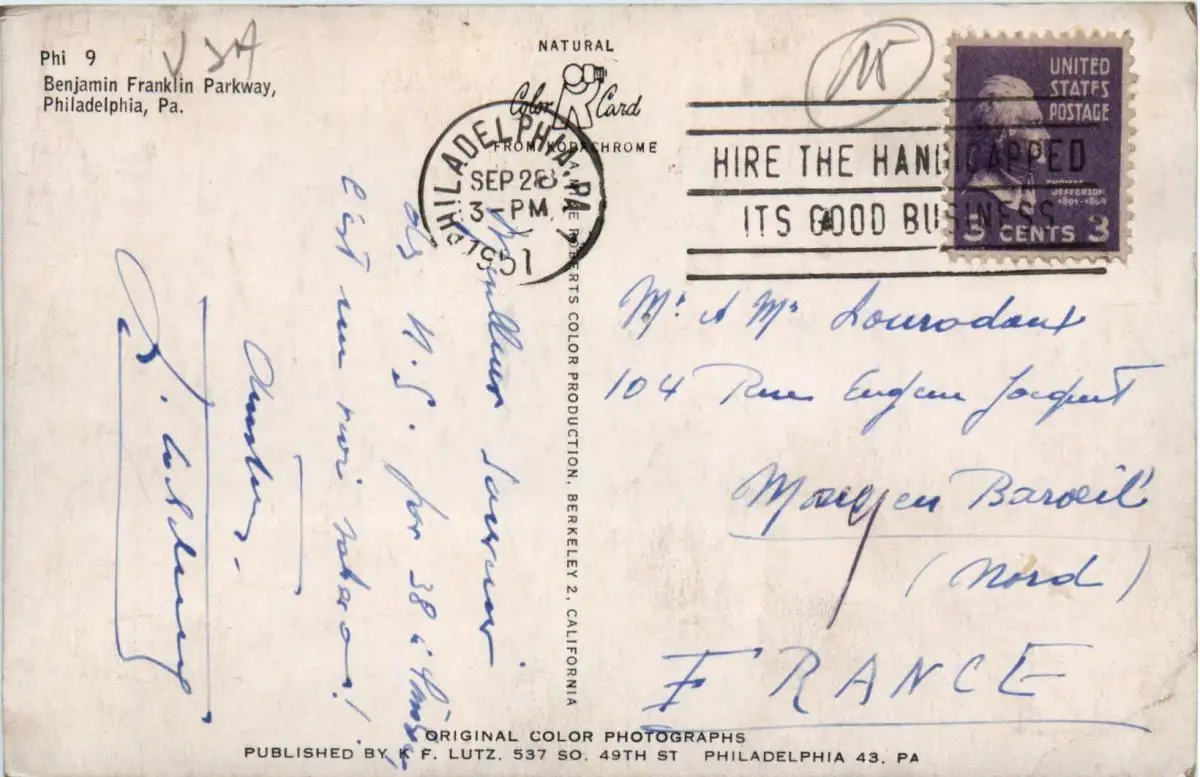 Phi 9
USA
Benjamin Franklin Parkway,
Philadelphia, Pa.
NATURAL
Color Card
FROM KODACHROME
PHILADELPHIA, PA.
SEP 28
3 - PM
1951
HIRE THE HANDICAPPED
ITS GOOD BUSINESS
UNITED
STATES
POSTAGE
THOMAS
JEFFERSON
1801-1809
3 CENTS 3
A MIKE ROBERTS COLOR PRODUCTION, BERKELEY 2, CALIFORNIA
Meilleur Souvenir
des U.S. for
C'est un
Mr & Me
104 Rue Eugene Jacquet
Baroeil
(Nord)
FRANCE
ORIGINAL COLOR PHOTOGRAPHS
PUBLISHED BY K. F. LUTZ, 537 SO. 49TH ST PHILADELPHIA 43, PA